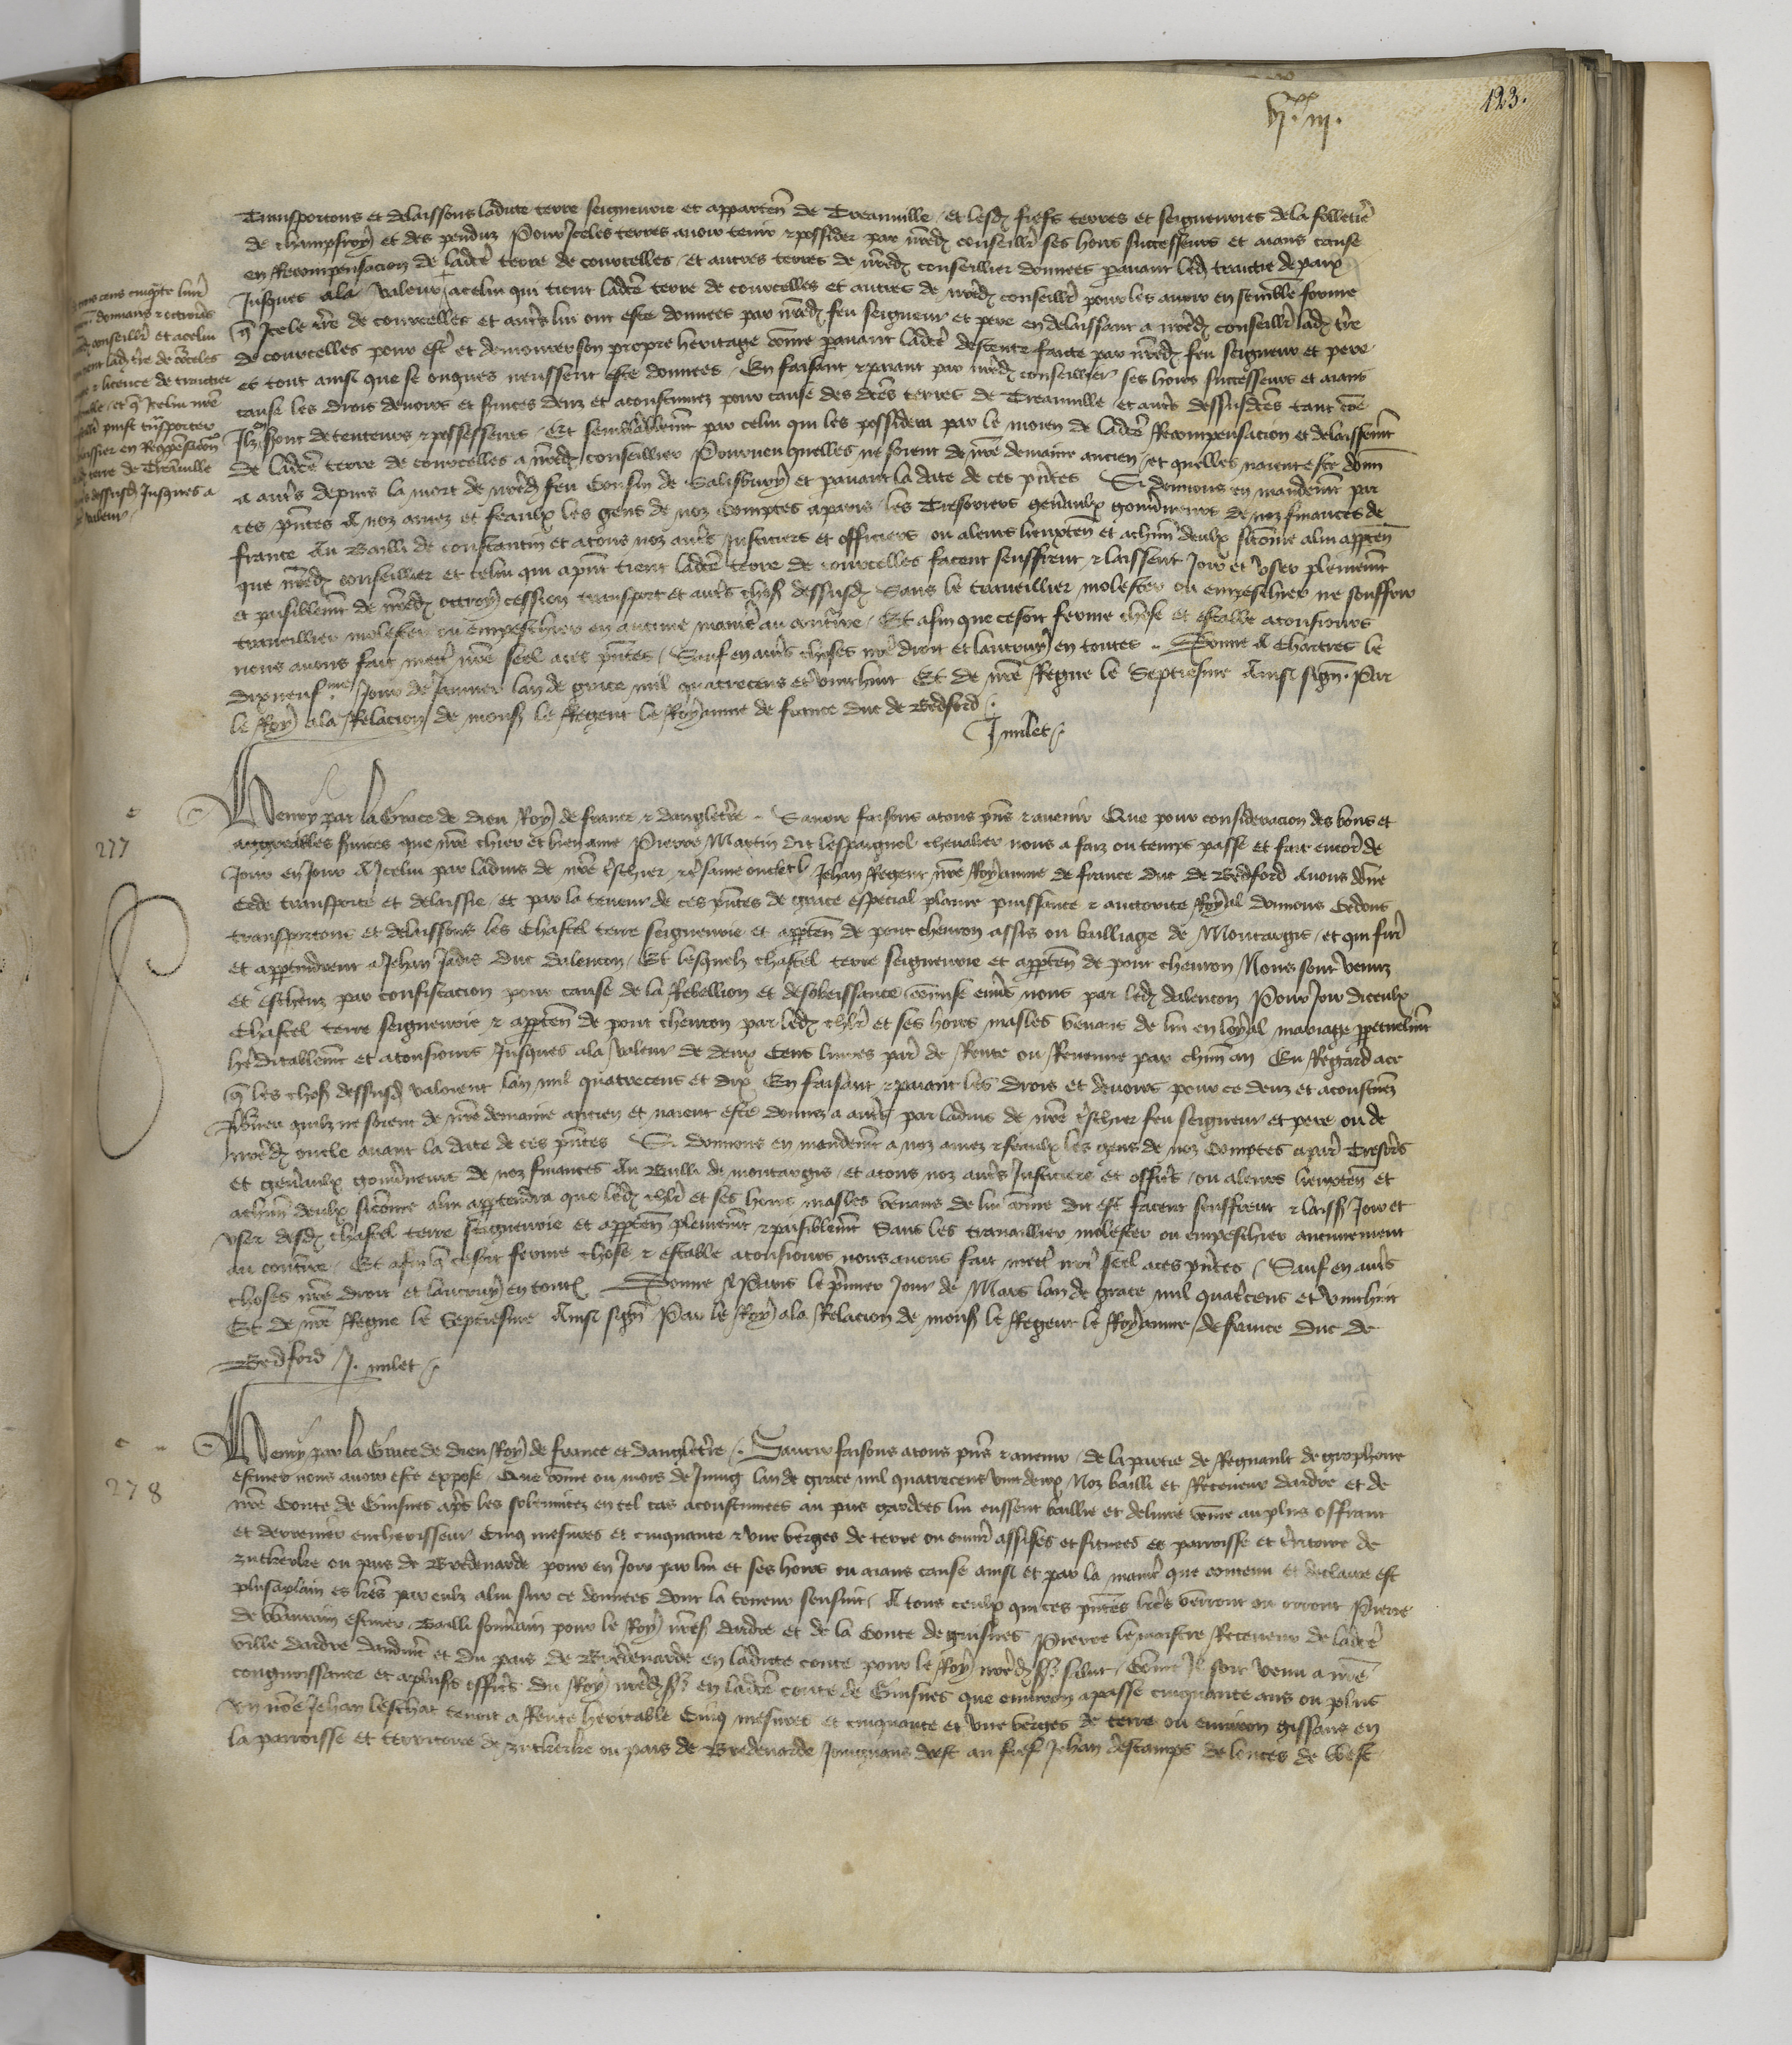 vi.xx iii.
123.
Transportons et delaissons ladicte terre seigneurie et apparten de Treauville / et lesd fiefs terres et seigneuries de la folletie
de champfroy et des penduz Pour Iceles terres avoir tenir & posseder par nred conseillr ses hoirs successeurs et aians cause
en Recompensacion de ladcte terre de courcelles / et autres terres de nred conseillier donnees pavant led traictie de paix
Jusques ala valeur / acelui qui tient ladcte terre de courcelles et autres de nred conseillr pour les avoir en semble forme
q Icele tre de courcelles et autrs lui ont este donnees par nred feu seigneur et pere en delaissant a nred conseillr lad tre
de courcelles pour estr et demourer son propre heritage come pavant ladcte descente faicte par nred feu seigneur et pere
et tout ainsi que se onques neussent este donnees / En faisant & paiant par nred conseillier ses hoirs successeurs et aians
cause les drois devoirs et svices deuz et acoustumez pour cause des dctes terres de Treauville et autrs dessusdctes tant coe
Ilz sont detenteurs & possesseurs / Et semblablemt par celui qui les possidera par le moien de ladcte Recompensacion et delaissemt
de ladcte terre de courcelles a nred conseillier Pourveu quelles ne soient de nre demaine ancien / et quelles naient este donn
a autrs depuis la mort de nred feu Cousin de Salisbury et pavant la date de ces pntes Si donnons en mandemt par
ces pntes A noz amez et feaulx les gens de noz Comptes aparis / les Tresoriers genraulx gouvrneurs de noz finances de
france Au Bailli de constantin et atous noz autrs Justiciers et officiers ou aleurs lieuxten et achun deulx sicome alui apptien
que nred conseillier et celui qui apnt tient ladcte terre de courcelles facent seuffrent & laissent Joir et user plainemt
et paisiblemt de nred ottroy cession transport et autrs chos dessusd Sans le travaillier molester ou empeschier ne souffrir
travaillier molester ou empeschier en aucune manre au contre / Et afin que ce soit ferme chose et estable atousiours
nous avons fait mettr nre seel aces pntes / Sauf en autrs choses nre droit et lautruy en toutes .. Donne A Chartres le
dixneufme Jour de Janvier lan de grace mil quatrecens et vinthuit Et de nre Regne le Septiesme Ainsi sign. Par
le Roy ala Relacion de mons le Regent le Royaume de france duc de Bedford .
J milet
cens cinqte livr
donnans & ottroians
conseillr et acelui
tient lad tre de corceles
& licence de traictier
et q Icelui nre
conseillr puist trsporter
delaissier en Recopensacon
terre de Treauville
dessusd Jusques a
valeur
277
Henry par la Grace de dieu Roy de france & dangletrre .. Savoir faisons atous pns & avenir Que pour consideracion des bons et
aggreables svices que nre chier et bien ame Pierre Martin dit lespaignol chevalier nous a faiz ou temps passe et fait encor de
Jour en Jour A Icelui par ladvis de nre tschier & tsame oncle Jehan Regent nre Royaume de france duc de Bedford Avons done
cede transporte et delaissie / et par la teneur de ces pntes de grace especial plaine puissance & auctorite Royal donnons Cedons
transportons et delaissons les Chastel terre seigneurie et apptn de pont chevron assis ou bailliage de Montargis / et qui furt
et appteindrent a Jehan Jadis duc dalencon / Et lesquelz chastel terre seigneurie et apptn de pont chevron Nous sont venuz
et escheuz par confiscacion pour cause de la Rebellion et desobeissance comise envs nous par led dalencon Pour Joir diceulx
Chastel terre seigneurie & apptn de pont chevron par led chlr et ses hoirs masles venans de lui en loyal mariage ppetuelmt
hereditablemt et atousiours Jusques ala valeur de deux Cens livres par de Rente ou Revenue par chun an Eu Regard ace
q les chos dessusd valoient lan mil quatrecens et dix En faisant & paiant les drois et devoirs pour ce deuz et acoustumez
Pourveu quilz ne soient de nre demaine ancien et naient este donnez a autrs par ladvis de nre tschier feu seigneur et pere ou de
nred oncle avant la date de ces pntes Si donnons en mandemt a noz amez & feaulx les gens de noz Comptes apar Tresors
et genraulx gouvrneurs de noz finances Au Bailli de montargis / et atous noz autrs Justiciers et officrs / ou aleurs lieuxten et
achun deulx sicome alui apptendra que led chlr et ses hoirs masles venans de lui come dit est facent seuffrent & laiss Joir et
user desd chastel terre seigneurie et apptn plainemt & paisiblemt Sans les travaillier molester ou empeschier aucunement
au contre / Et afin q ce soit ferme chose & estable atousiours nous avons fait mettr nre seel aces pntes / Sauf en autrs
choses nre droit et lautruy en tout Donne A Paris le premier Jour de Mars lan de grace mil quatrcens et vinthuit
Et de nre Regne le Septiesme Ainsi sign Par le Roy ala Relacion de mons le Regent le Royaume de france duc de
Bedford J. milet
278
Henry par la Grace de dieu Roy de france et dangletrre / . Savoir faisons atous pns & avenir / de la partie de Regnault de
escuier nous avoir este expose / Que come ou mois de Juing lan de grace mil quatrecens vint deux Noz bailli et Receveur dardre et de
nre Conte de Guisnes apres les solemnitez en tel cas acoustumees au pais gardees lui eussent baillie et delivre come au plus offrant
et derrenier encherisseur Cinq mesures et cinquante & une verges de terre ou environ assises et situees es parroisse et tritoire de
zutkerke ou pais de Bredenarde pour en Joir par lui et ses hoirs ou aians cause ainsi et par la manre que contenu et declaire est
plusaplain es lres par eulx alui sur ce donnees dont la teneur sensuit / A tous ceulx qui ces pntes lres verront ou orront Pierre
de Wavrin escuier Bailli souverain pour le Roy nres dardre et de la Conte de guisnes Pierre lemaistre Receveur de ladcte
ville dardre et du pais de Bredenarde en ladicte conte pour le Roy nred salut / Come Il soit venu a nre
congnoissance et aplusrs officrs du Roy nred en ladcte conte de Guisnes que environ apasse cinquante ans ou plus
un nome Jehan leschat tenoit a Rente heritable Cinq mesures et cinquante et une verges de terre ou environ gissans en
la parroisse et territoire de zutkerke ou pais de Bredenarde Joingnans dest au fief Jehan descamps de loncs de West